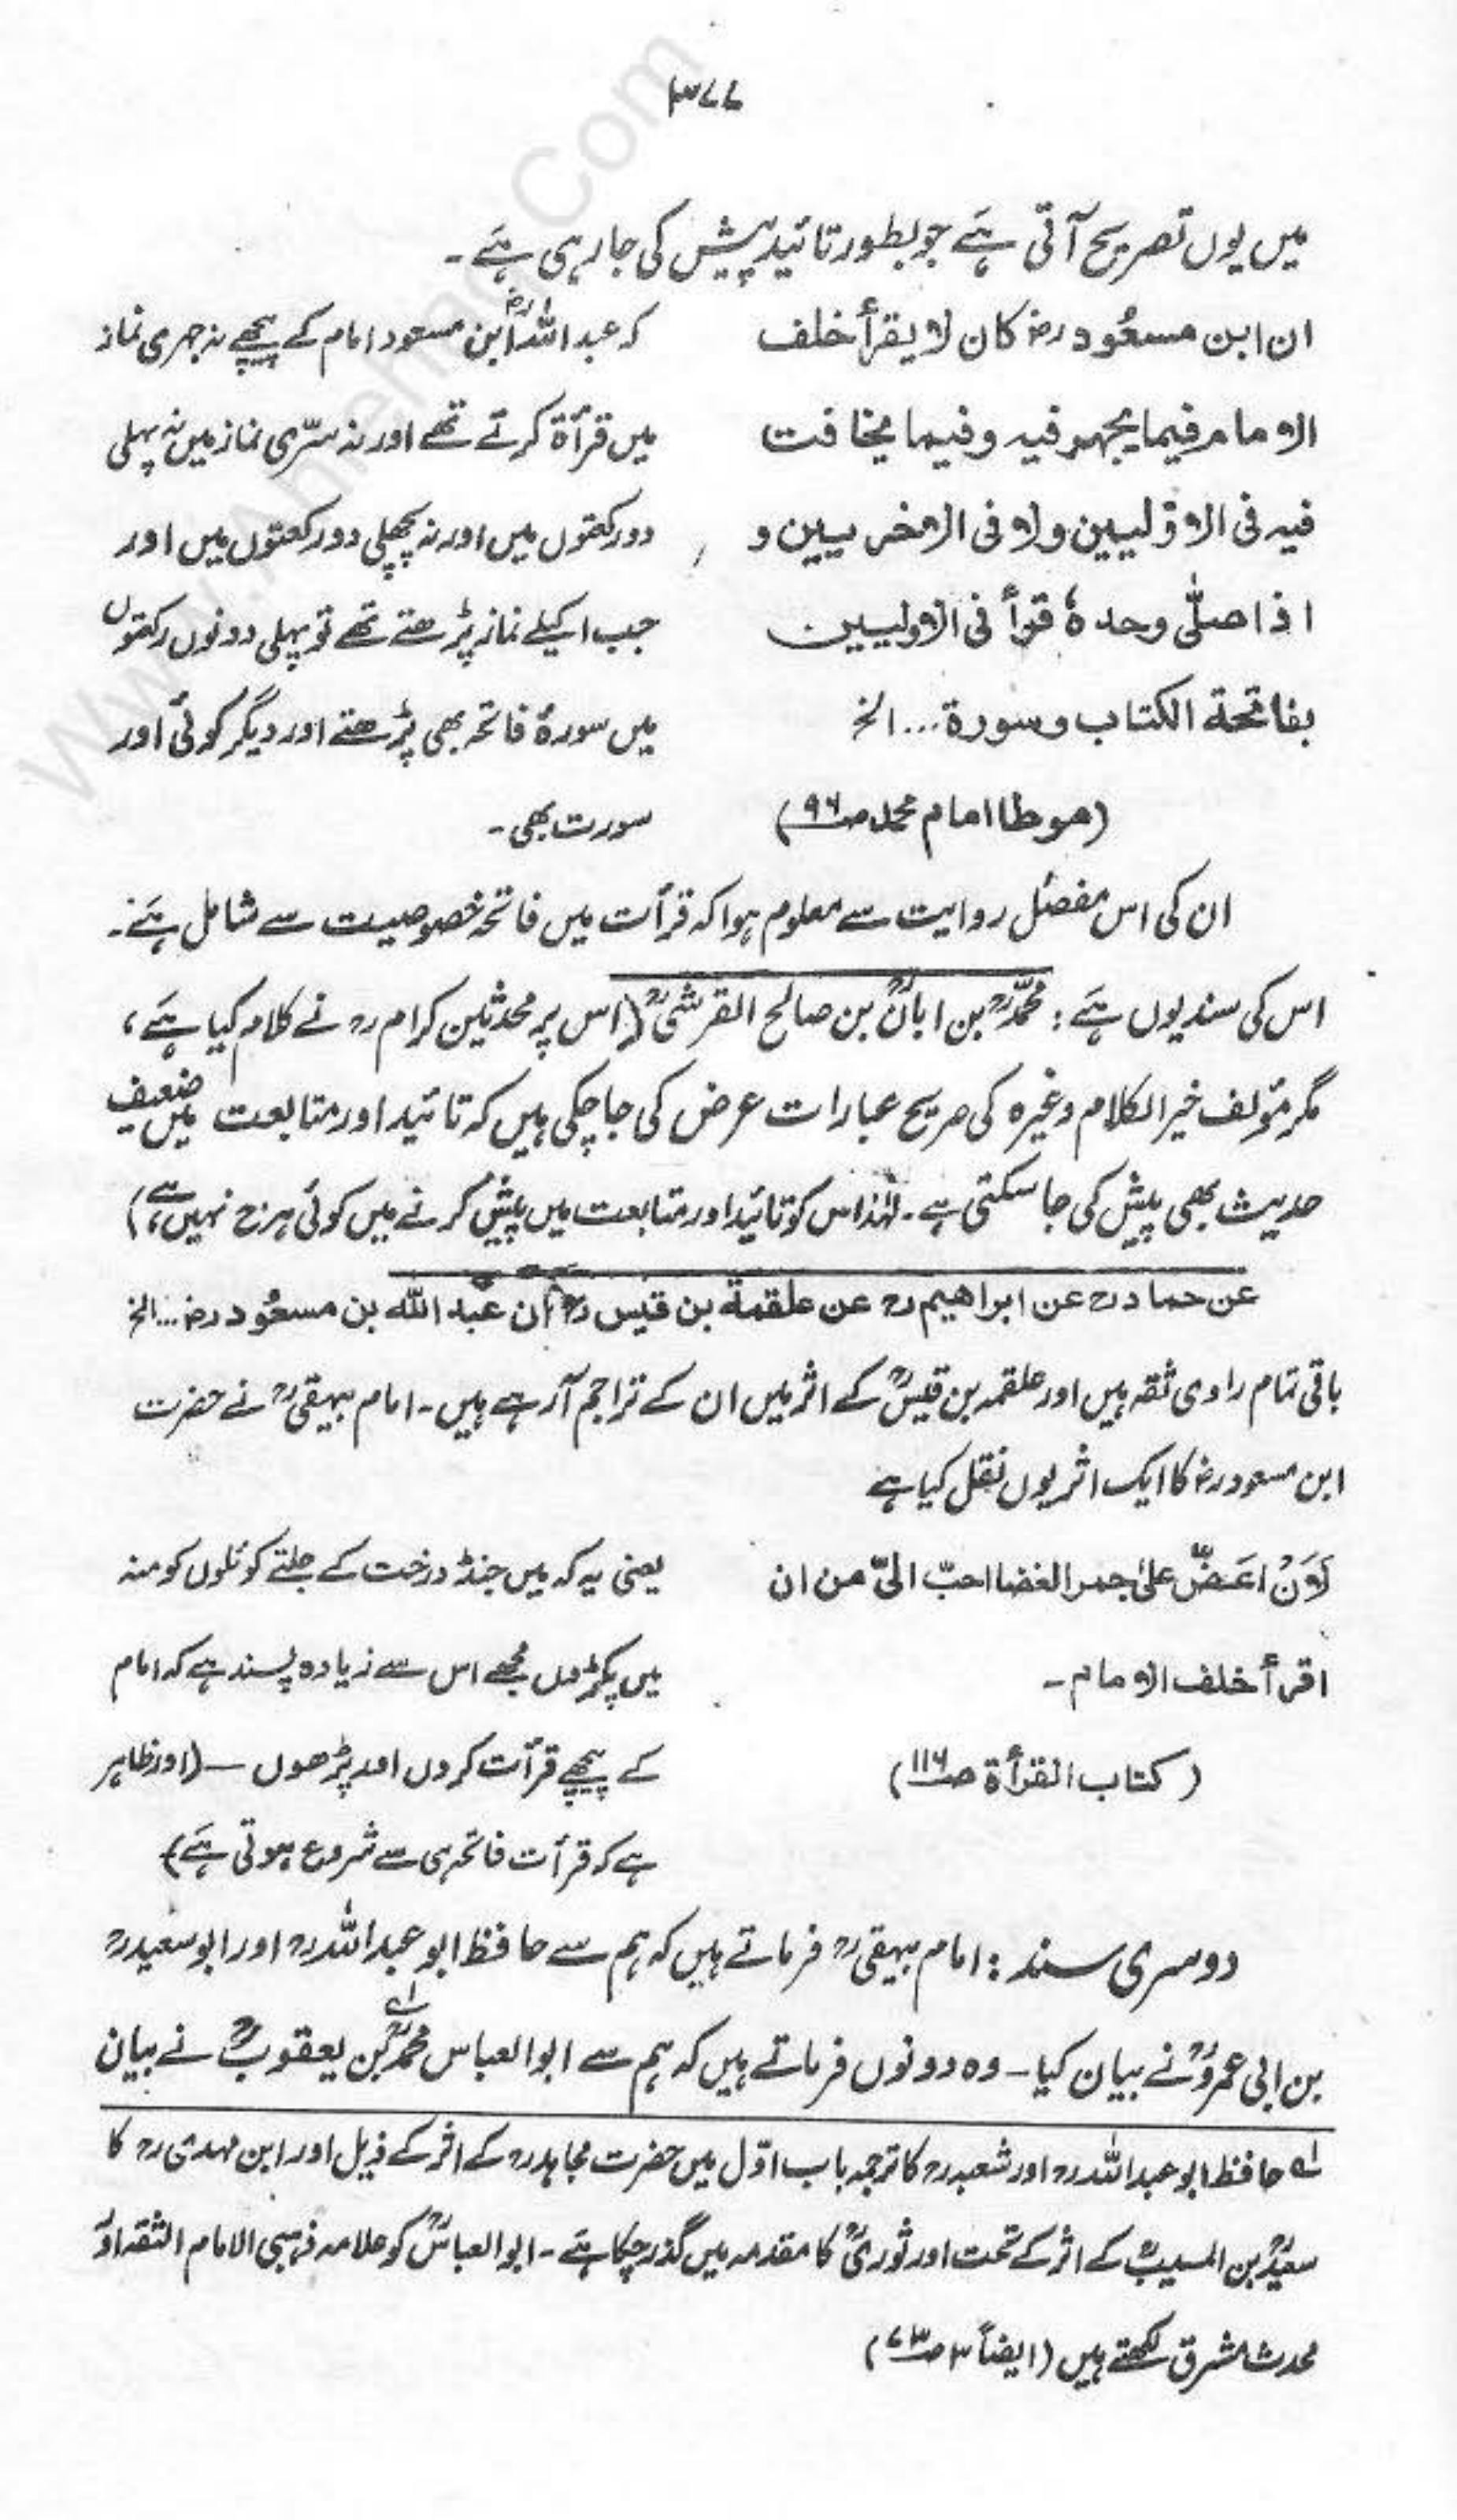 ۳۷۷
میں یوں تصریح آتی ہے جو بطور تائید پیش کی جا رہی ہے۔
ان ابن مسعود رض کان لا یقرأ خلف
الامام فیما یجہر فیہ وفیما یخافت
فیہ فی الاوّلیین ولا فی الاخریین و
اذا صلّٰی وحدہٗ قرأ فی الاولیین
بفاتحة الکتاب وسورة... الخ
(موطا امام محمد ص۹۶)
کہ عبداللہؓ ابن مسعود امام کے پیچھے نہ جہری نماز
میں قرأة کرتے تھے اور نہ سرّی نماز میں نہ پہلی
دو رکعتوں میں اور نہ پچھلی دو رکعتوں میں اور
جب اکیلے نماز پڑھتے تھے تو پہلی دونوں رکعتوں
میں سورۂ فاتحہ بھی پڑھتے اور دیگر کوئی اور
سورت بھی۔
ان کی اس مفصّل روایت سے معلوم ہوا کہ قرأت میں فاتحہ خصوصیت سے شامل ہے۔
اس کی سند یوں ہے: محمدؒ بن ابانؒ بن صالح القرشیؒ (اس پر محدثین کرام رح نے کلام کیا ہے،
مگر مؤلف خیر الکلام وغیرہ کی صریح عبارات عرض کی جا چکی ہیں کہ تائید اور متابعت میں ضعیف
حدیث بھی پیش کی جا سکتی ہے۔ لہٰذا اس کو تائید اور متابعت میں پیش کرنے میں کوئی ہرج نہیں ہے،)
عن حماد رح عن ابراھیم رح عن علقمة بن قیس رح ان عبد اللّٰہ بن مسعود رض...الخ
باقی تمام راوی ثقہ ہیں اور علقمہ بن قیسؒ کے اثر میں ان کے تراجم آ رہے ہیں۔ امام بیہقیؒ نے حضرت
ابن مسعود رض کا ایک اثر یوں نقل کیا ہے
لَاَنْ اَعَضّ علیٰ جمر الغضا احبّ الیّ من ان
اقرأ خلف الامام۔
(کتاب القرأة ص۱۱۶)
یعنی یہ کہ میں جنڈ درخت کے جلتے کوئلوں کو منہ
میں پکڑوں مجھے اس سے زیادہ پسند ہے کہ امام
کے پیچھے قرأت کروں اور پڑھوں — (اور ظاہر
ہے کہ قرأت فاتحہ ہی سے شروع ہوتی ہے)
دوسری سند: امام بیہقی رح فرماتے ہیں کہ ہم سے حافظ ابو عبداللہ رح اور ابوسعید رح
بن ابی عمروؒ نے بیان کیا۔ وہ دونوں فرماتے ہیں کہ ہم سے ابوالعباس محمدؒ بن یعقوبؒ نے بیان
لہ حافظ ابو عبداللہ رح اور شعبہ رح کا ترجمہ باب اوّل میں حضرت مجاہد رح کے اثر کے ذیل اور ابن مہدی رح کا
سعیدؒ بن المسیبؒ کے اثر کے تحت اور ثوریؒ کا مقدمہ میں گذر چکا ہے۔ ابوالعباسؒ کو علامہ ذہبی الامام الثقہ اور
محدث مشرق لکھتے ہیں (ایضاً ۳ ص۷۳)
www.Ahlehaq.Com